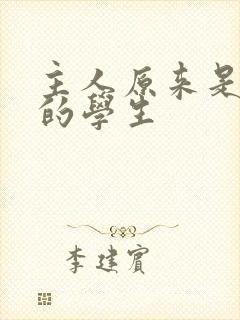 主人原来是
的學生
李建賓